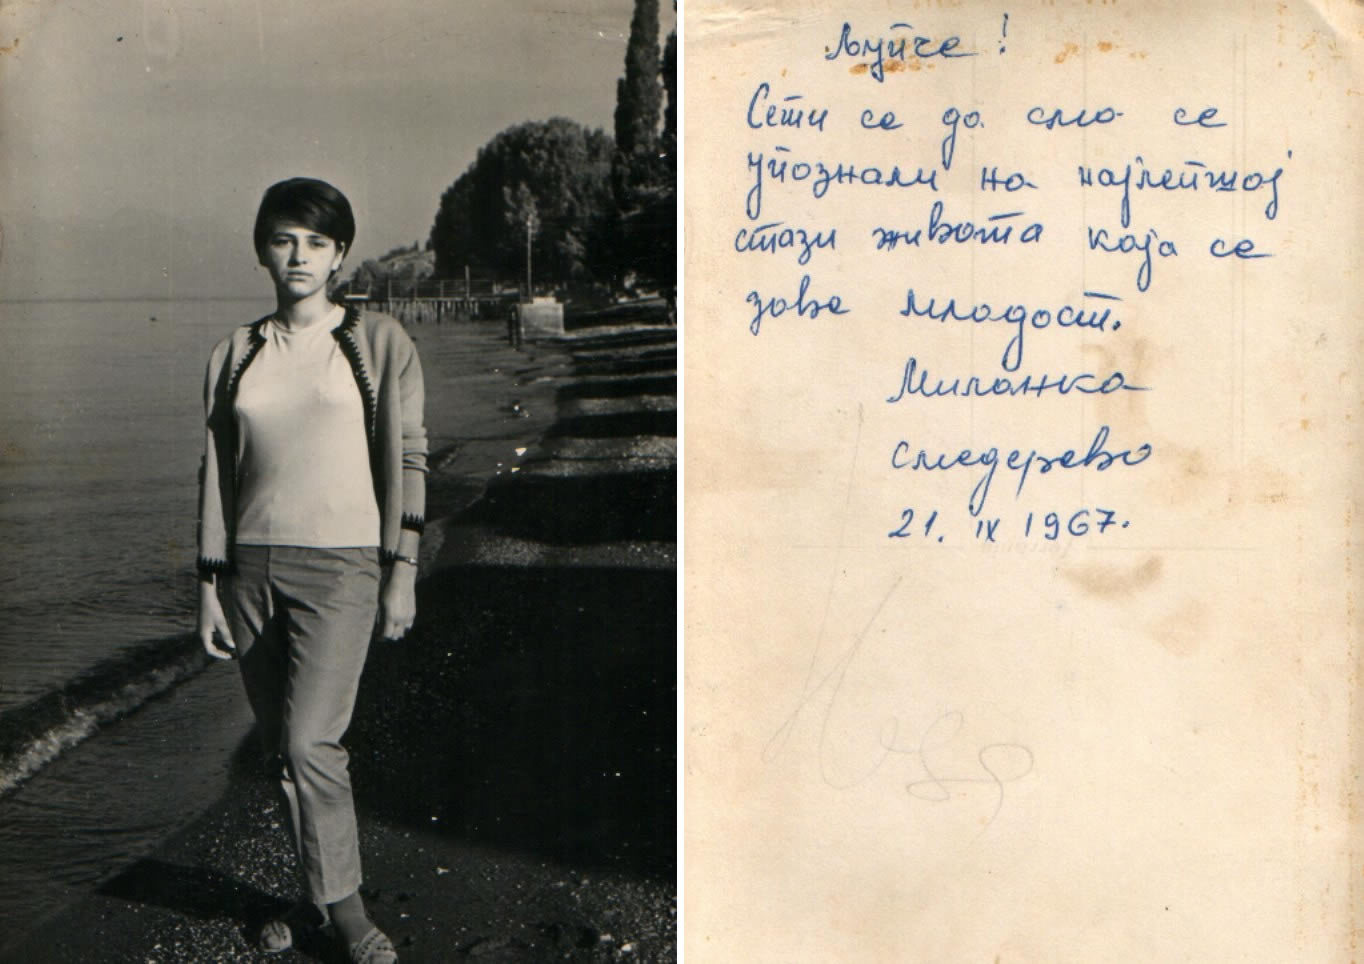 Љупче!
Сети се да смо се
упознали на најлепшој
стази живота која се
зове младост.
Миланка
Смедерево
21. IX 1967.